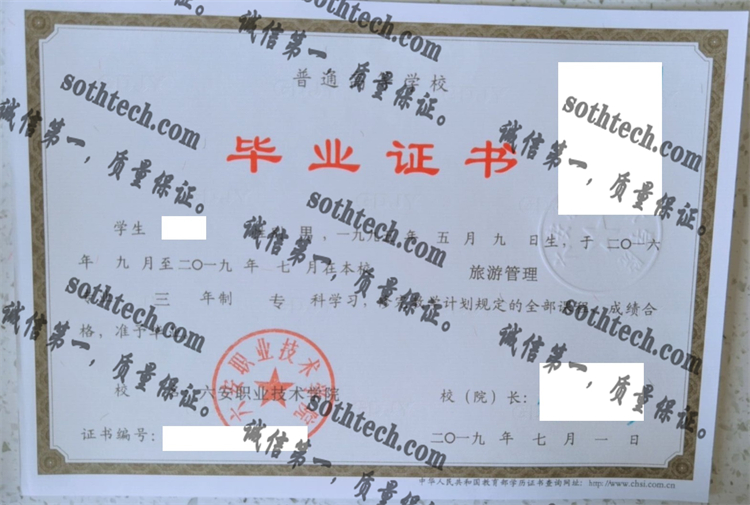 诚信第一，质量保证。
sothtech.com
普通高等学校
sothtech.com
sothtech.com
诚信第一，质量保证。
毕业证书
诚信第一，质量保证。
sothtech.com
学生 男，一九九 年 五 月 九 日生，于 二〇一六
诚信第一，质量保证。
年 九 月至二〇一九 年 七 月在本校 旅游管理
sothtech.com
三 年制 专 科学习， 教学计划规定的全部课程，成绩合
sothtech.com
格，准予毕业。
诚信第一，质量保证。
诚信第一，质量保证。
六安职业技术学院
校 六安职业技术学院 校（院）长：
sothtech.com
证书编号： 二〇一九 年 七 月 一 日
诚信第一，质量保证。
中华人民共和国教育部学历证书查询网址：http://www.chsi.com.cn